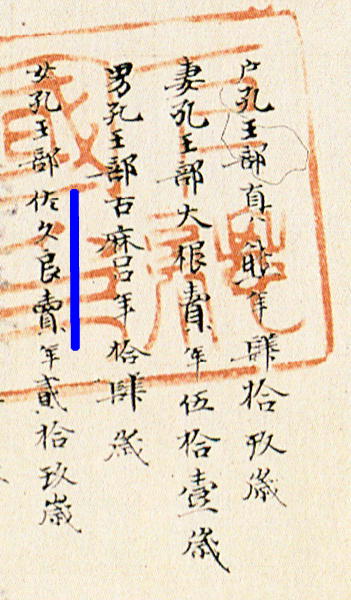 戸孔王部真熊年肆拾玖歳
妻孔王部大根賣年伍拾壹歳
男孔王部古麻呂年拾肆歳
女孔王部佐久良賣年貳拾玖歳